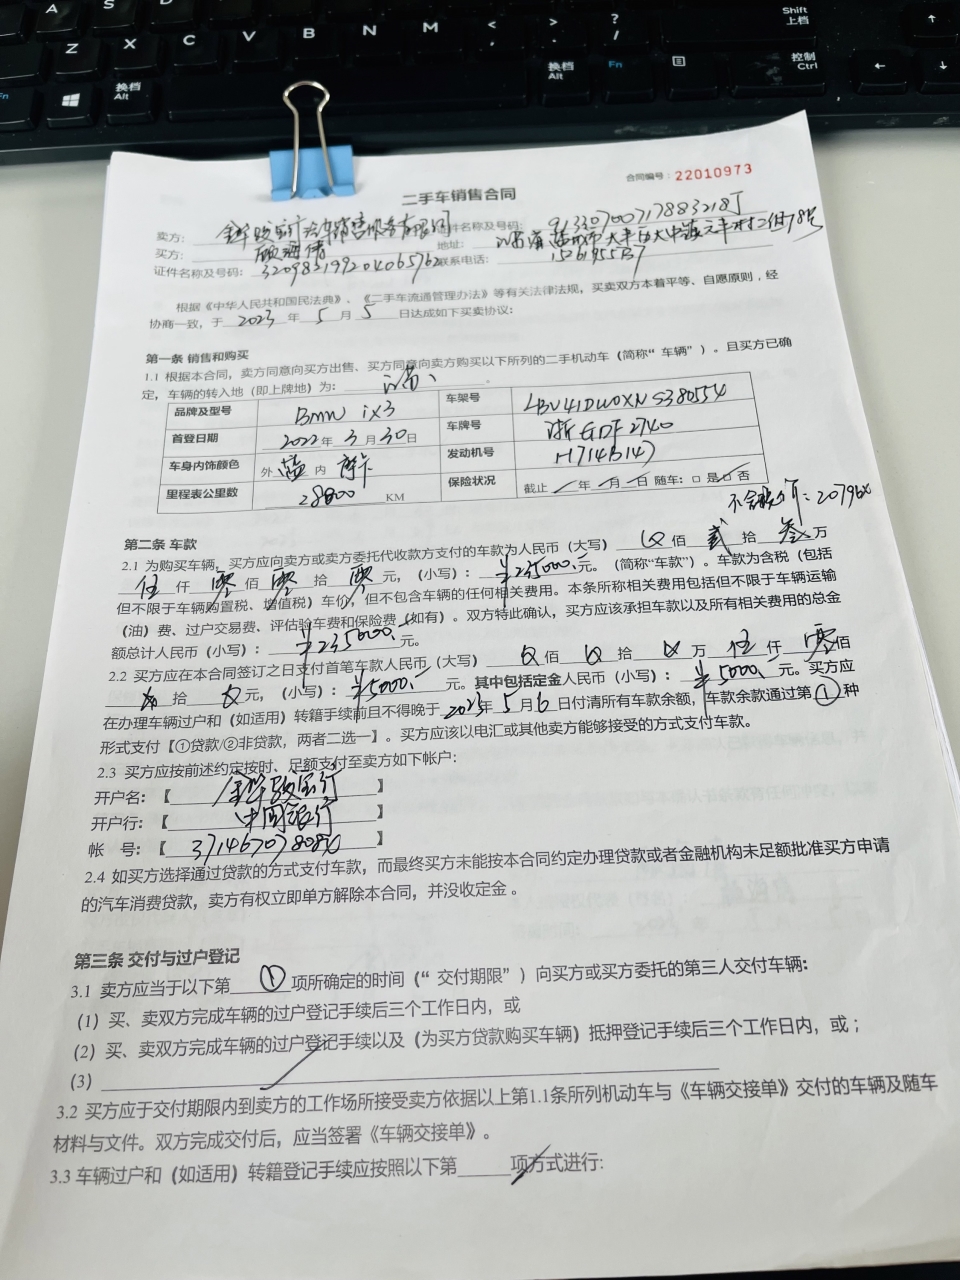 A S D
Z X C V B N M < , > . ? / Shift 上档
Fn 换档 Alt 换档 Alt Fn 控制 Ctrl
二手车销售合同
合同编号: 22010973
卖方: 证件名称及号码: 91330700717883218J
买方: 地址:
证件名称及号码: 联系电话:
根据《中华人民共和国民法典》、《二手车流通管理办法》等有关法律法规,买卖双方本着平等、自愿原则,经
协商一致,于 2023 年 5 月 5 日达成如下买卖协议:
第一条 销售和购买
1.1 根据本合同,卖方同意向买方出售、买方同意向卖方购买以下所列的二手机动车(简称“车辆”)。且买方已确
定,车辆的转入地(即上牌地)为:
品牌及型号 BMW iX3 车架号
首登日期 2022年 3 月 30 日 车牌号 浙GDF2740
车身内饰颜色 外 蓝 内 摩卡 发动机号 H714B147
里程表公里数 28800 KM 保险状况 截止 年 月 日 随车: □ 是 □ 否
第二条 车款
2.1 为购买车辆,买方应向卖方或卖方委托代收款方支付的车款为人民币(大写) 佰 贰 拾 叁 万
伍 仟 零 佰 零 拾 零 元,(小写): ¥235000.元。(简称“车款”)。车款为含税(包括
但不限于车辆购置税、增值税)车价,但不包含车辆的任何相关费用。本条所称相关费用包括但不限于车辆运输
(油)费、过户交易费、评估验车费和保险费(如有)。双方特此确认,买方应该承担车款以及所有相关费用的总金
额总计人民币(小写): ¥235000. 元。
2.2 买方应在本合同签订之日支付首笔车款人民币(大写) 佰 拾 万 伍 仟 零 佰
拾 元,(小写): ¥5000.- 元。其中包括定金人民币(小写): ¥5000.- 元。买方应
在办理车辆过户和(如适用)转籍手续前且不得晚于 2023 年 5 月 6 日付清所有车款余额,车款余款通过第 ① 种
形式支付【①贷款/②非贷款,两者二选一】。买方应该以电汇或其他卖方能够接受的方式支付车款。
2.3 买方应按前述约定按时、足额支付至卖方如下帐户:
开户名:【 金华骏宝行 】
开户行:【 中国银行 】
帐 号:【 】
2.4 如买方选择通过贷款的方式支付车款,而最终买方未能按本合同约定办理贷款或者金融机构未足额批准买方申请
的汽车消费贷款,卖方有权立即单方解除本合同,并没收定金。
第三条 交付与过户登记
3.1 卖方应当于以下第 ① 项所确定的时间(“交付期限”)向买方或买方委托的第三人交付车辆:
(1)买、卖双方完成车辆的过户登记手续后三个工作日内,或
(2)买、卖双方完成车辆的过户登记手续以及(为买方贷款购买车辆)抵押登记手续后三个工作日内,或;
(3)
3.2 买方应于交付期限内到卖方的工作场所接受卖方依据以上第1.1条所列机动车与《车辆交接单》交付的车辆及随车
材料与文件。双方完成交付后,应当签署《车辆交接单》。
3.3 车辆过户和(如适用)转籍登记手续应按照以下第 项方式进行: